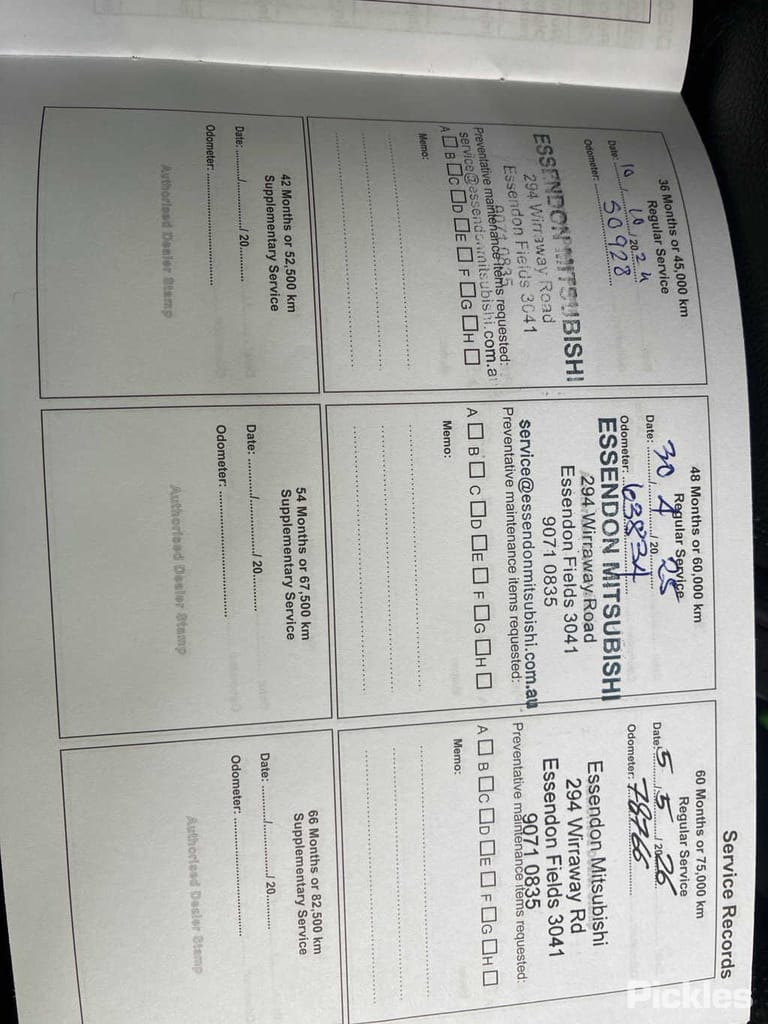 Service Records
36 Months or 45,000 km
Regular Service
Date: 10 / 10 / 20 24
Odometer: 50928
ESSENDON MITSUBISHI
294 Wirraway Road
Essendon Fields 3041
9071 0835
service@essendonmitsubishi.com.au
Preventative maintenance items requested:
A B C D E F G H
Memo:
48 Months or 60,000 km
Regular Service
Date: 30 / 4 / 20 25
Odometer: 63834
ESSENDON MITSUBISHI
294 Wirraway Road
Essendon Fields 3041
9071 0835
service@essendonmitsubishi.com.au
Preventative maintenance items requested:
A B C D E F G H
Memo:
60 Months or 75,000 km
Regular Service
Date: 5 / 5 / 20 26
Odometer: 78766
Essendon Mitsubishi
294 Wirraway Rd
Essendon Fields 3041
9071 0835
Preventative maintenance items requested:
A B C D E F G H
Memo:
42 Months or 52,500 km
Supplementary Service
Date: ......../......../ 20........
Odometer: ........................
Authorised Dealer Stamp
54 Months or 67,500 km
Supplementary Service
Date: ......../......../ 20........
Odometer: ........................
Authorised Dealer Stamp
66 Months or 82,500 km
Supplementary Service
Date: ......../......../ 20........
Odometer: ........................
Authorised Dealer Stamp
Pickles